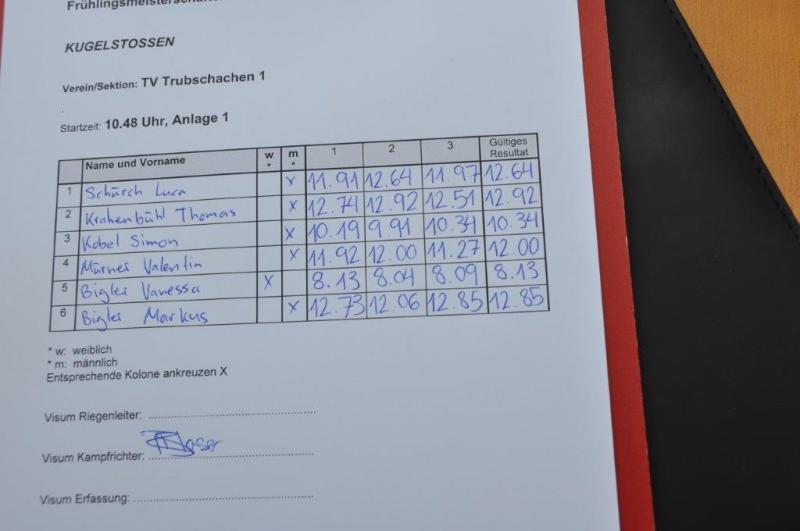 Frühlingsmeisterschaften
KUGELSTOSSEN
Verein/Sektion: TV Trubschachen 1
Startzeit: 10.48 Uhr, Anlage 1
Name und Vorname w * m * 1 2 3 Gültiges Resultat
1 Schürch Luca x 11.91 12.64 11.97 12.64
2 Krähenbühl Thomas x 12.74 12.92 12.51 12.92
3 Kobel Simon x 10.19 9.91 10.34 10.34
4 Valentin x 11.92 12.00 11.27 12.00
5 Bigler Vanessa x 8.13 8.04 8.09 8.13
6 Bigler Markus x 12.73 12.06 12.85 12.85
* w: weiblich
* m: männlich
Entsprechende Kolone ankreuzen X
Visum Riegenleiter:
Visum Kampfrichter:
Visum Erfassung: